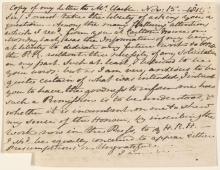 Copy of my letter to Mr. Clarke Nov. 15. 1815
Sir, I must take the liberty of asking you a
question. Among the many flattering attentions
which I rec'd from you at Carlton House on
Monday last, was the Information of my being
at liberty to dedicate any future work to HRH
the P.R. without the necessity of any Solicitation
on my part. Such at least, I believed to be
your words; but as I am very anxious to be
quite certain of what was intended, I intreat
you to have the goodness to inform me how
such a Permission is to be understood, &
whether it is incumbent on me to shew
my sense of the Honour, by inscribing the
work now in the Press, to H.R.H.
I sh'd be equally concerned to appear either
presumptuous or Ungrateful.